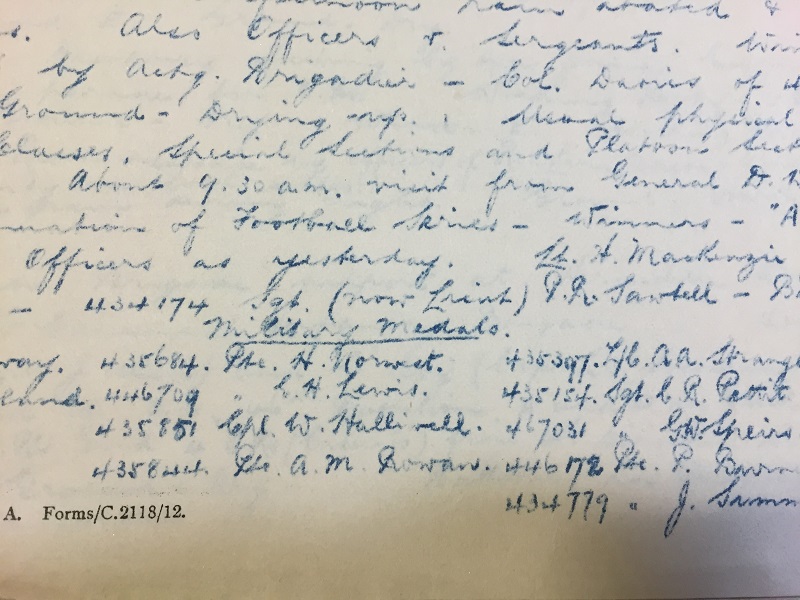 afternoon rain abated &
Also Officers v. Sergeants.
by Actg. Brigadier - Col. Davis of
Ground - Drying up. : Usual physical
Classes, Special Sections and Platoon
About 9.30 a.m. visit from General D.
of Football Series - Winners - "A
Officers as yesterday. Lt. H. Mackenzie
- 434174 Sgt. (now Lieut) P.R. Sawtell -
Military Medals.
way. 435684. Pte. H. Norwest. 435397. L/C. A.A. Strange
446709 " C.H. Lewis. 435154. Sgt. C R. Pettit
435851 Cpl. W. Halliwell. 467031 " G.W. Speirs
435844. Pte. A.M. Rowan. 446172 Pte. P.
434779 " J.
A. Forms/C.2118/12.